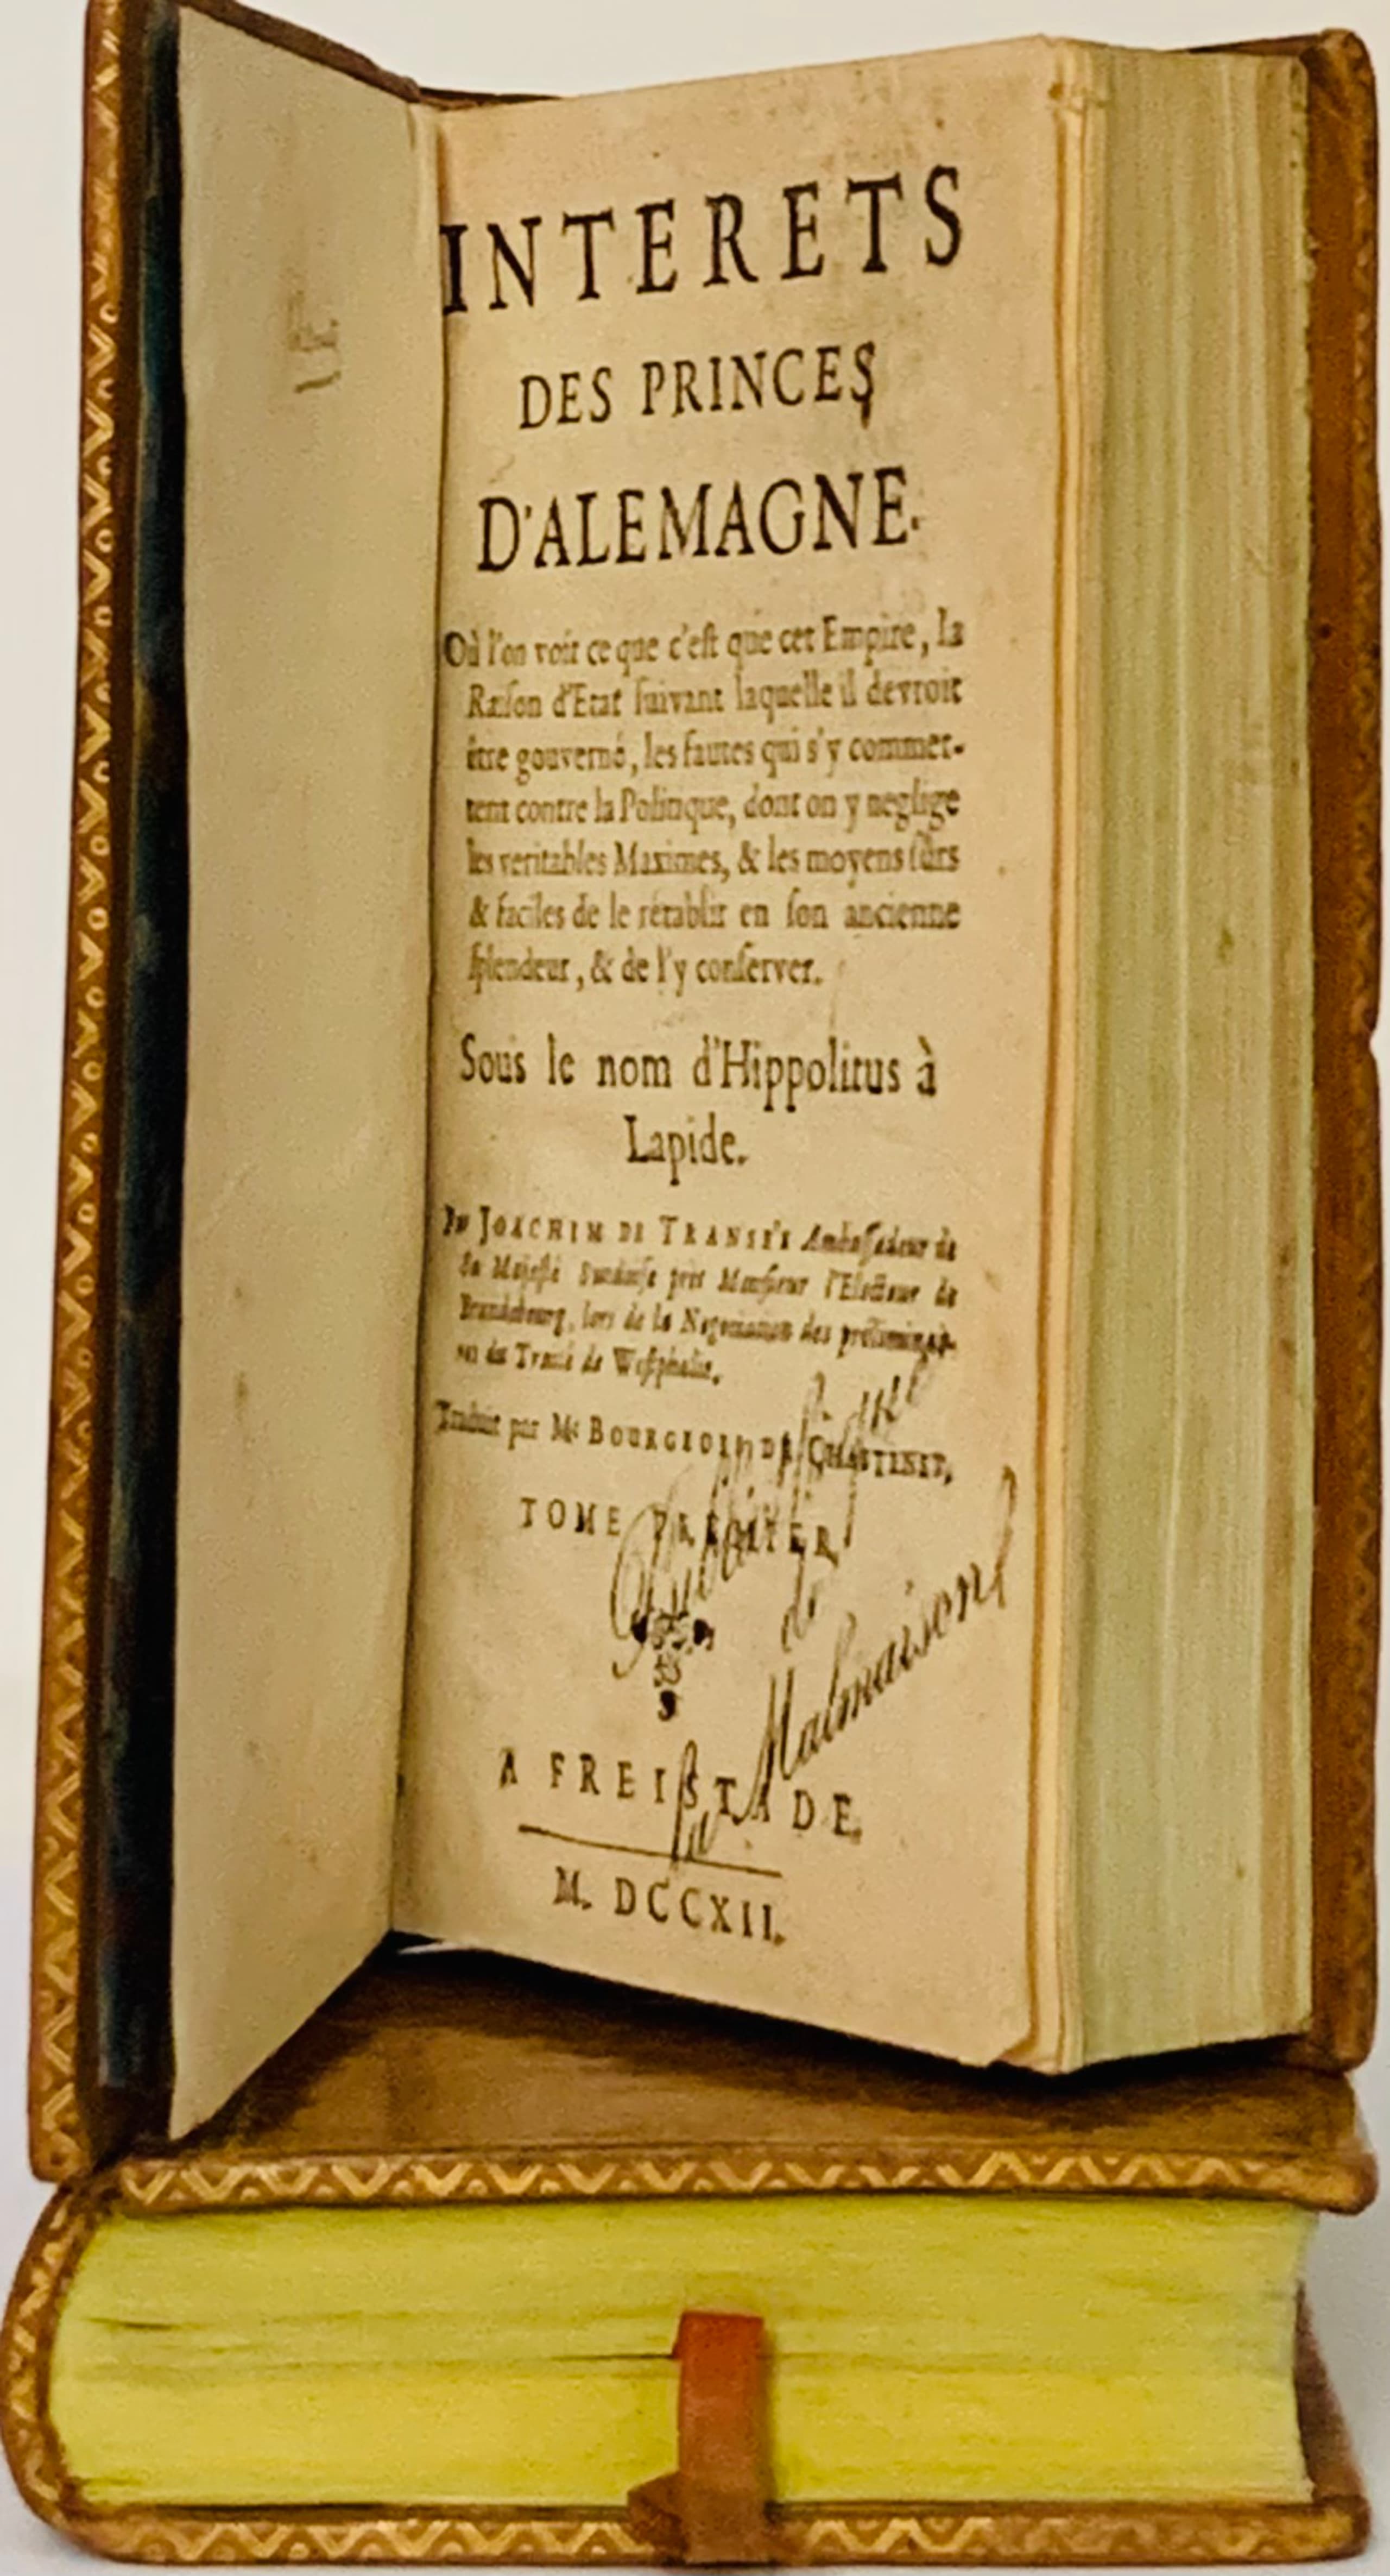 INTERETS
DES PRINCES
D'ALEMAGNE.
Où l'on voit ce que c'eſt que cet Empire, la
Raiſon d'Etat ſuivant laquelle il devroit
être gouverné, les fautes qui s'y commet-
tent contre la Politique, dont on y neglige
les veritables Maximes, & les moyens ſûrs
& faciles de le rétablir en ſon ancienne
ſplendeur, & de l'y conſerver.
Sous le nom d'Hippolitus à
Lapide.
Par JOACHIM DE TRANSÉE Ambaſſadeur de
Sa Majeſté Suedoiſe près Monſieur l'Electeur de
Brandebourg, lors de la Negociation des préliminai-
res du Traité de Weſtphalie.
Traduit par Mr BOURGEOIS DE CHASTENET,
TOME PREMIER
de
Malmaison
A FREISTADE,
M. DCCXII.